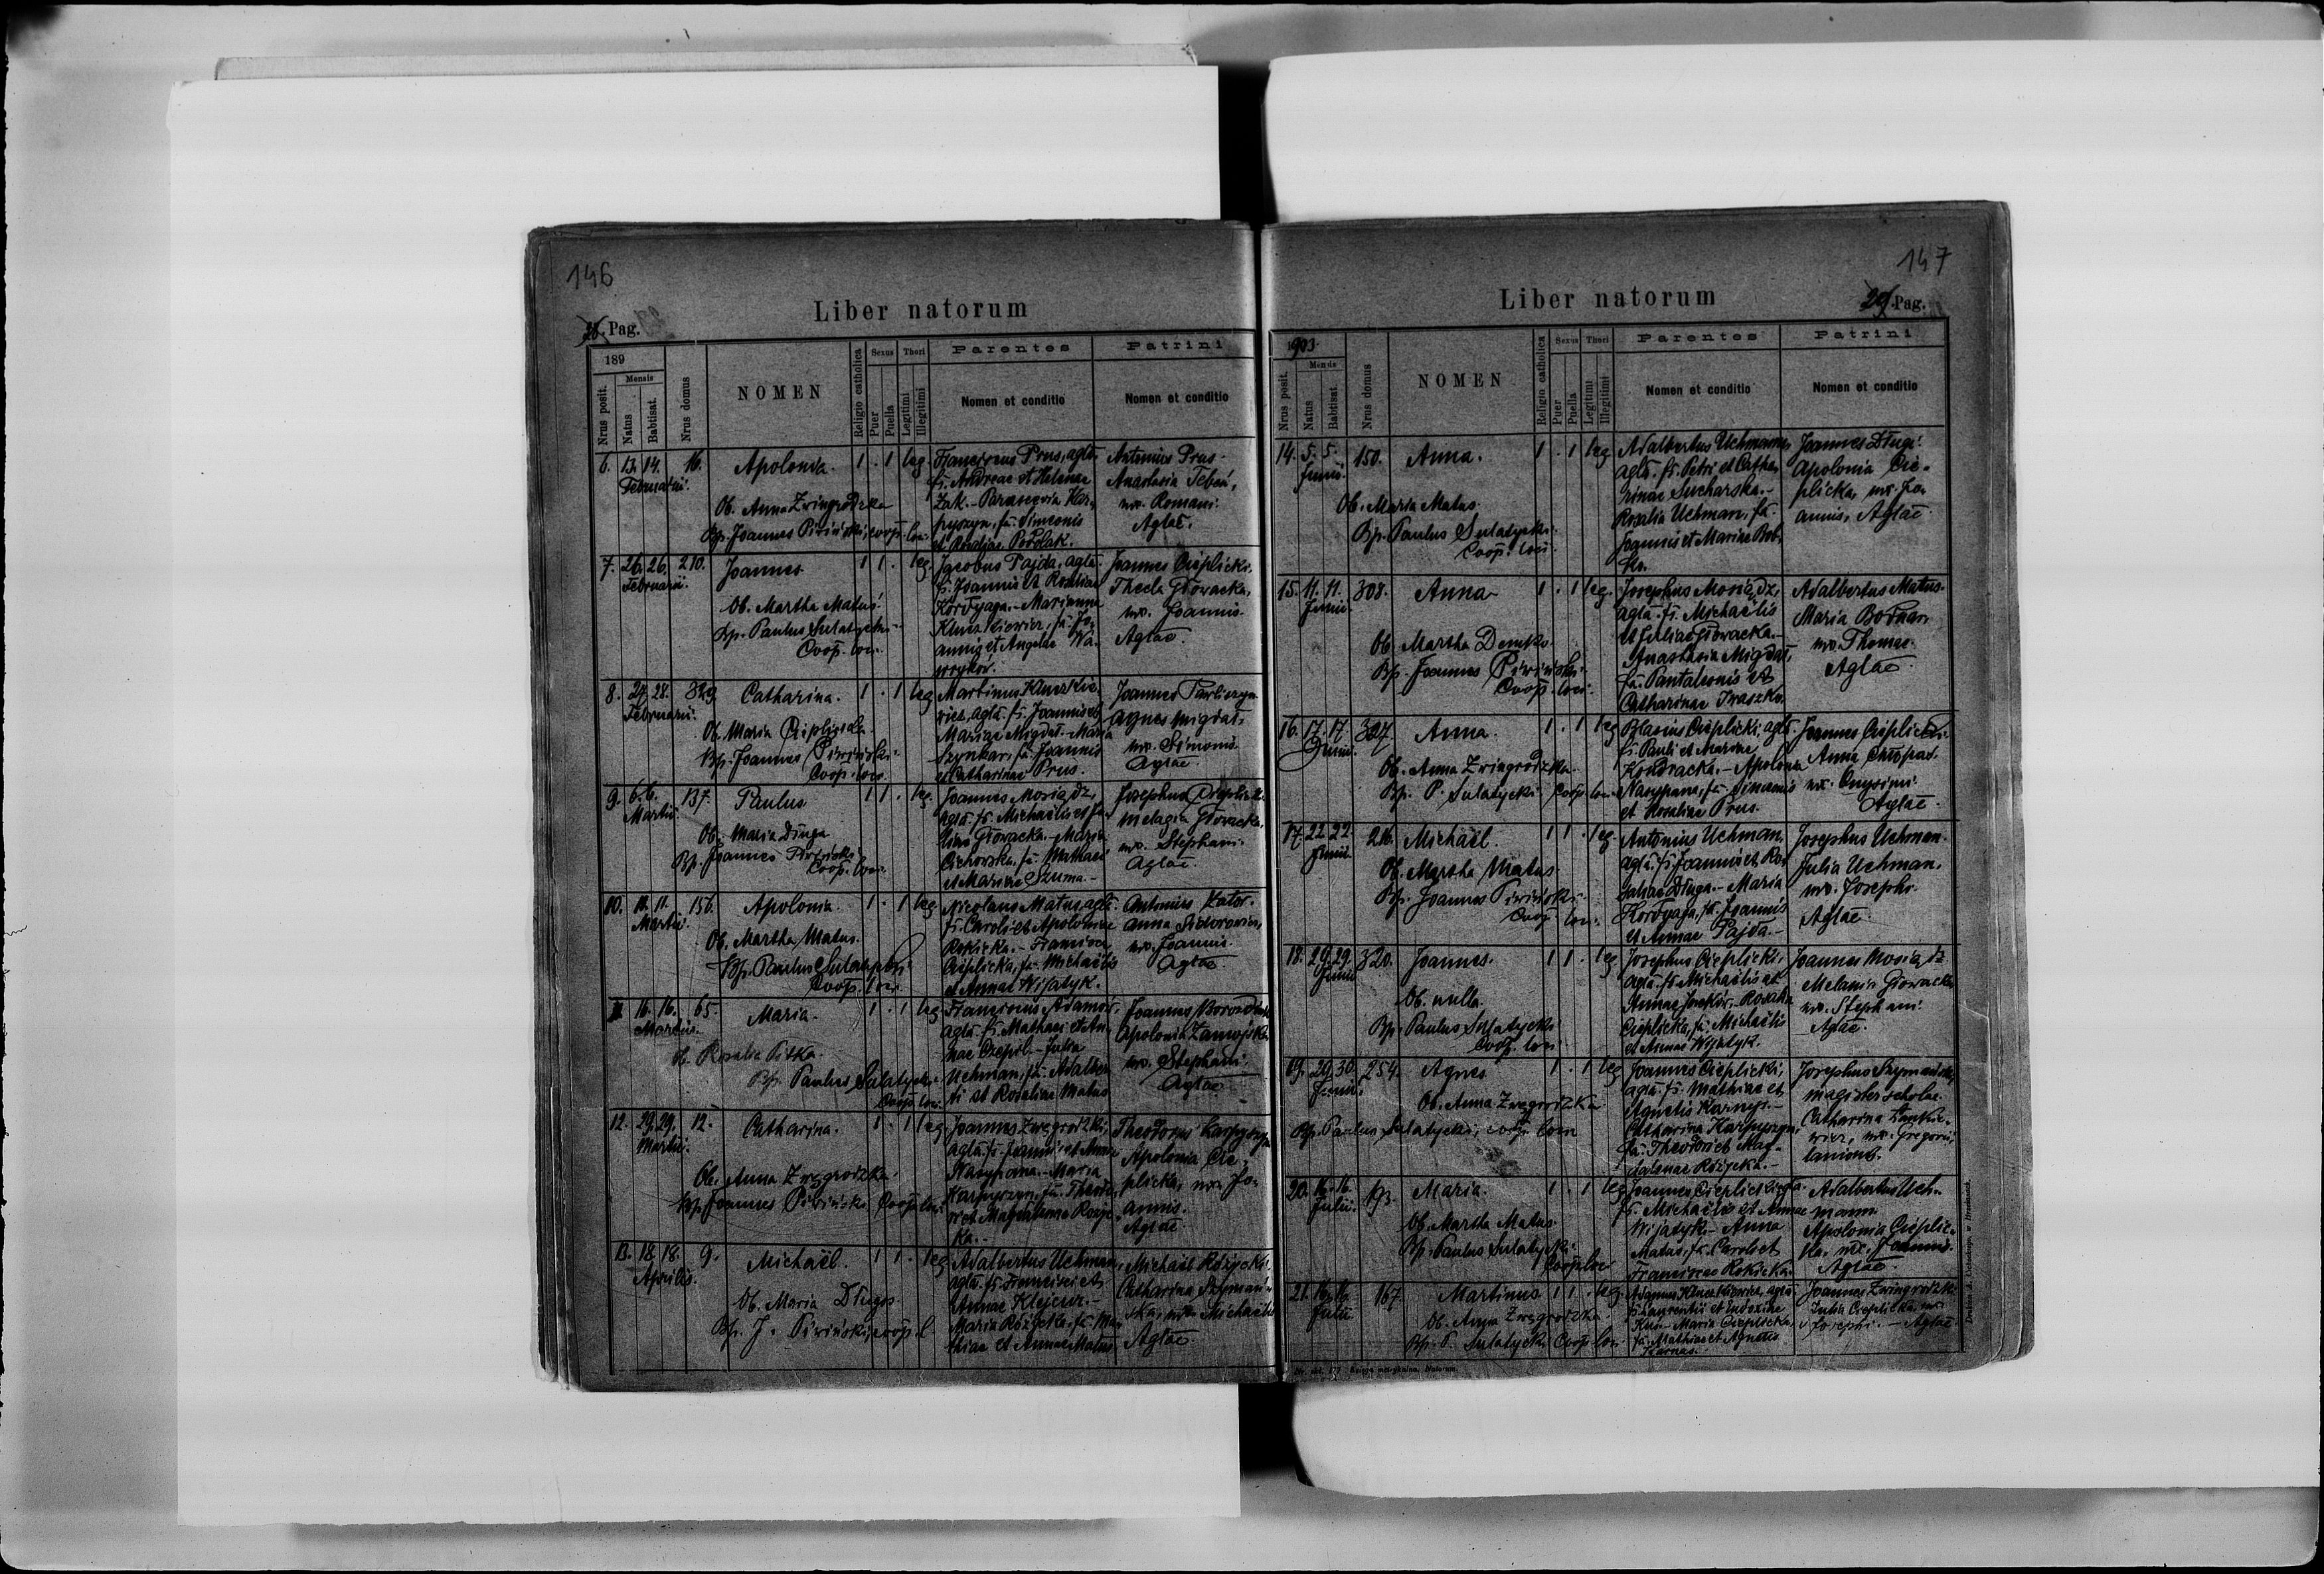 146
Liber natorum
28. Pag.
189
Nrus posit.
Mensis
Natus
Babtisat.
Nrus domus
NOMEN
Religio catholica
Sexus
Puer
Puella
Thori
Legitimi
Illegitimi
Parentes
Nomen et conditio
Patrini
Nomen et conditio
6. 13. 14. Februarii. 16. Apolonia. 1 . 1 leg.
Ob. Anna Zwingrodzka
Bp. Joannes Piwiński, coop. loci.
Franciscus Prus, aglā.
fs. Andreae et Helenae
Żak. - Parascevia Kar-
pyszyn, fa. Simeonis
et Rosaliae Podolak.
Antonius Prus.
Anastasia
ux. Romani.
Aglae.
7. 26. 26. Februarii. 210. Joannes 1 1 . leg.
Ob. Martha Matus.
Bp. Paulus Sulatycki
Coop. loci.
Jacobus Pajda, aglā.
fs. Joannis et Rosaliae
Kordyaga. - Marianna
Kluczkiewicz, fa. Jo-
annis et Angelae
Joannes Cieplicki.
Thecla Głowacka,
ux. Joannis.
Aglae.
8. 27. 28. Februarii. 329 Catharina. 1 . 1 leg
Ob. Maria Cieplicka
Bp. Joannes Piwiński.
Coop. loci.
Martinus Kluczkie-
wicz, aglā. fs. Joannis et
Mariae Migdał. - Maria
Szynkar, fa. Joannis
et Catharinae Prus.
Joannes
Agnes Migdał.
ux. Simonis.
Aglae.
9. 6. 6. Martii. 137. Paulus 1 1 . leg.
Ob. Maria Długa
Bp. Joannes Piwiński
Coop. loci.
Joannes Mosiądz,
aglā. fs. Michaëlis et Ju-
liae Głowacka. Maria
Cichorska, fa. Mathaei
et Mariae Szuma. -
Josephus
Melagia Głowacka,
ux. Stephani.
Aglae.
10. 11. 11. Martii. 156. Apolonia. 1 . 1 leg
Ob. Martha Matus.
Bp. Paulus Sulatycki
Coop. loci.
Nicolaus Matus, aglā.
fs. Caroli et Apoloniae
Rokicka. - Francisca
Cieplicka, fa. Michaëlis
et Annae Wijatyk.
Antonius Kator.
Anna Sidorowicz,
ux. Joannis.
Aglae.
16. 16. Martii. 65. Maria. 1 . 1 leg
Ob. Rosalia Pitka.
Bp. Paulus Sulatycki.
Coop. loci.
Franciscus
aglā. fs. Mathaei et An-
nae - Julia
Uchman, fa. Adalber-
ti et Rosaliae Matus
Joannes
Apolonia Zamojska
ux. Stephani.
Aglae.
12. 29. 29. Martii. 12. Catharina. 1 . 1 leg
Ob. Anna Zwęgrodzka.
Bp. Joannes Piwiński Coop. loci
Joannes Zwęgrodzki,
aglā. fs. Joannis et Annae
Nasypana. - Maria
Karpyszyn, fa. Theodo-
ri et Magdalenae
ka. -
Theodorus Karpyszyn
Apolonia Cie-
plicka, ux. Jo-
annis.
Aglae
13. 18. 18. Aprilis. 9. Michaël. 1 1 . leg
Ob. Maria Długos
Bp. J. Piwiński, coop. l
Adalbertus Uchman,
aglā. fs. Francisci et
Annae
Maria Różycka, fa. Ma-
thiae et Annae Matus
Michaël Różycki.
Catharina Szymań-
ska, ux. Michaëlis
Aglae
147
Liber natorum
29. Pag.
1903.
Nrus posit.
Mensis
Natus
Babtisat.
Nrus domus
NOMEN
Religio catholica
Sexus
Puer
Puella
Thori
Legitimi
Illegitimi
Parentes
Nomen et conditio
Patrini
Nomen et conditio
14. 5. 5. Junii. 150. Anna. 1 . 1 leg
Ob. Maria Matus.
Bp. Paulus Sulatycki.
Coop. loci.
Adalbertus Uchman,
aglā. fs. Petri et Catha-
rinae Sucharska. -
Rosalia Uchman, fa.
Joannis et Mariae Bob-
ko.
Joannes Długi.
Apolonia Cie-
plicka, ux. Jo-
annis, Aglae.
15. 11. 11. Junii. 308. Anna 1 . 1 leg.
Ob. Martha Demko.
Bp. Joannes Piwiński
Coop. loci.
Josephus Mosiądz,
aglā. fs. Michaëlis
et Juliae Głowacka. -
Anastasia Migdał,
fa. Pantaleonis et
Catharinae Iwaszko.
Adalbertus Matus.
Maria Bodnar
ux. Thomae.
Aglae.
16. 17. 17. Junii. 327. Anna. 1 . 1 leg
Ob. Anna Zwingrodzka.
Bp. P. Sulatycki. Coop. loci.
Blasius Cieplicki, aglā.
fs. Pauli et Mariae
Kondracka. - Apolonia
Nasypana, fa. Simeonis
et Rosaliae Prus.
Joannes Cieplicki.
Anna Chłopad.
ux. Onysimi.
Aglae.
17. 22. 22. Junii. 216. Michaël. 1 1 . leg
Ob. Martha Matus.
Bp. Joannes Piwiński.
Coop. loci.
Antonius Uchman,
aglā. fs. Joannis et Ro-
saliae Długa. - Maria
Kordyaga, fa. Joannis
et Annae Pajda. -
Josephus Uchman.
Julia Uchman,
ux. Josephi.
Aglae.
18. 29. 29. Junii. 320. Joannes. 1 1 . leg
Ob. nulla.
Bp. Paulus Sulatycki
Coop. loci.
Josephus Cieplicki,
aglā. fs. Michaëlis et
Annae Rosalia
Cieplicka, fa. Michaëlis
et Annae Wijatyk.
Joannes Mosiądz.
Melania Głowacka
ux. Stephani.
Aglae.
19. 29. 30. Junii. 254. Agnes 1 . 1 leg
Ob. Anna Zwęgrodzka
Bp. Paulus Sulatycki, coop. loci
Joannes Cieplicki,
aglā. fs. Mathiae et
Agnetis Karnas. -
Catharina Karpyszyn,
fa. Theodori et Mag-
dalenae Różycka. -
Josephus Szymański,
magister scholae.
Catharina
wicz, ux. Gregorii,
20. 16. 16. Julii. 193. Maria. 1 . 1 leg
Ob. Martha Matus.
Bp. Paulus Sulatycki.
Coop. loci
Joannes Cieplicki, aglā.
fs. Michaëlis et Annae
Wijatyk. - Anna
Matus, fa. Caroli et
Franciscae Rokicka.
Adalbertus Uch-
mann
Apolonia Cieplic-
ka, ux. Joannis.
Aglae.
21. 16. 16. Julii. 167 Martinus 1 1 . leg.
Ob. Anna Zwęgrodzka.
Bp. P. Sulatycki Coop. loci
Adamus Kluczkiewicz, aglā
fs. Laurentii et Eudoxiae
Maria Cieplicka,
fa. Mathiae et Agnetis
Karnas.
Joannes Zwingrodzki
Julia Cieplicka, ux.
Josephi. - Aglae